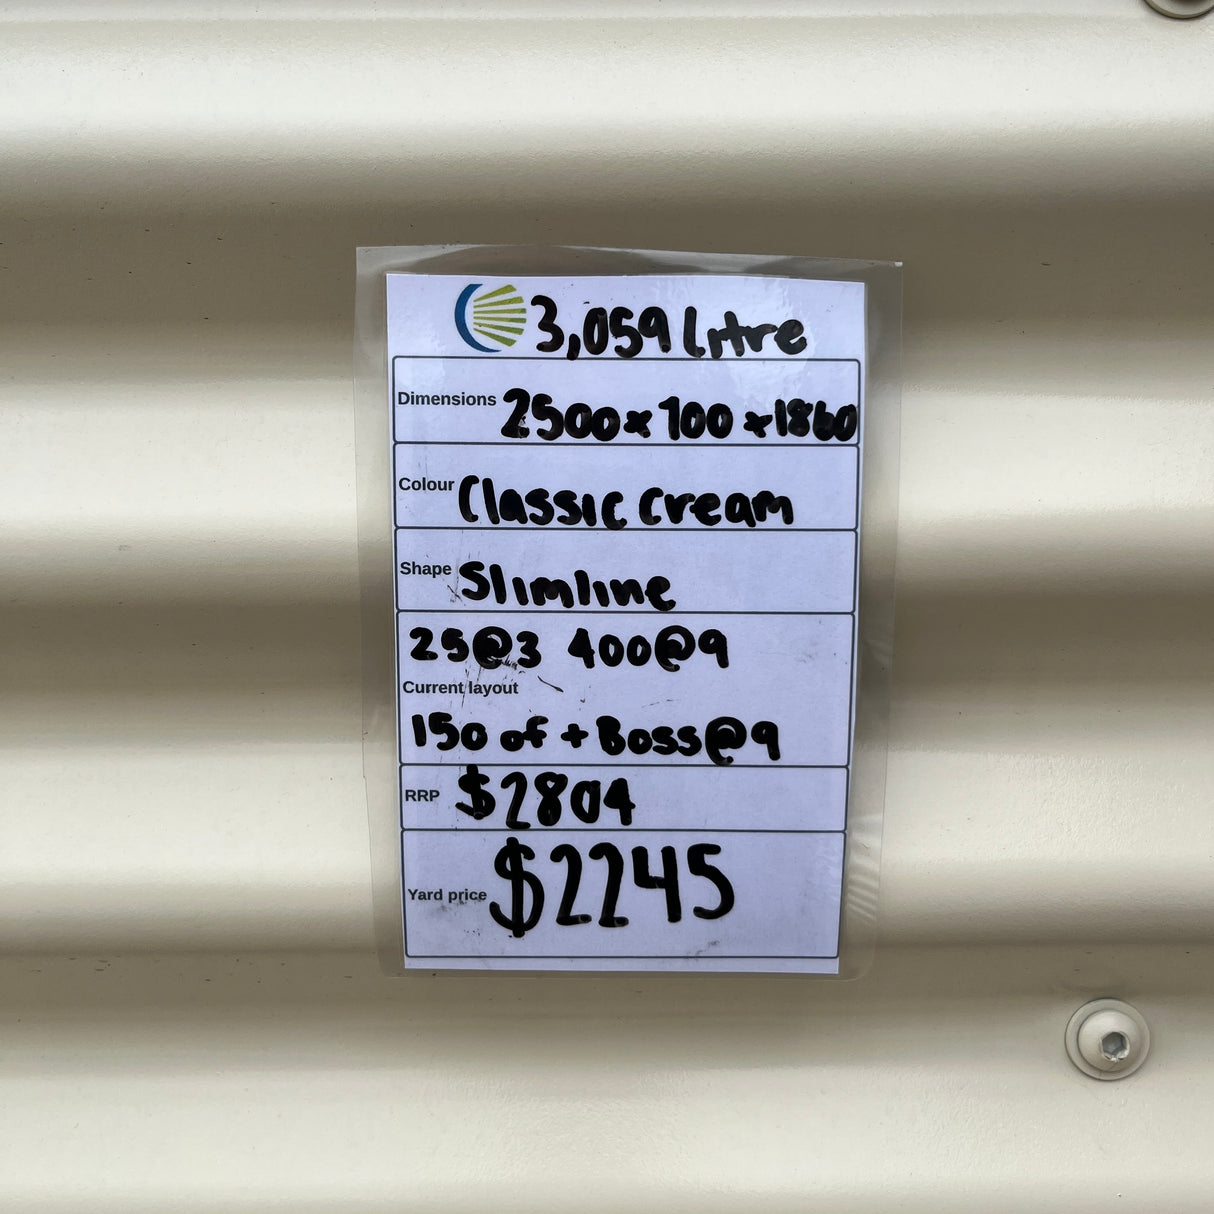 3,059 Litre
Dimensions 2500 x 700 x 1860
Colour Classic Cream
Shape Slimline
25@3 400@9
Current layout
150 of + Boss@9
RRP $2804
Yard price $2245